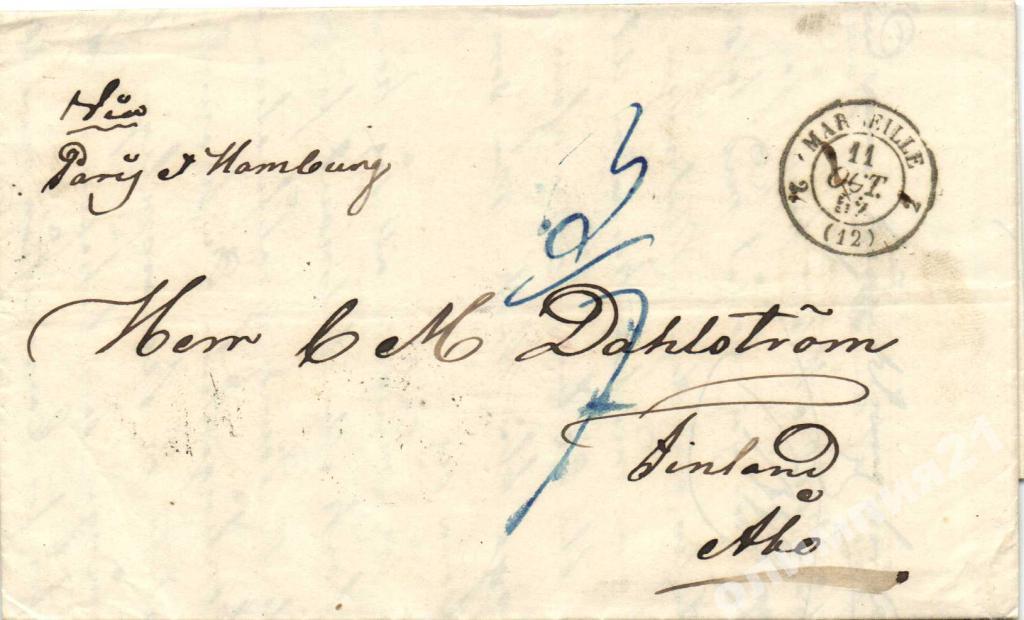 Via
Paris & Hamburg
MARSEILLE
11
OCT.
(12)
2
2
Herr C M Dahlström
Finland
Åbo
олимпия21